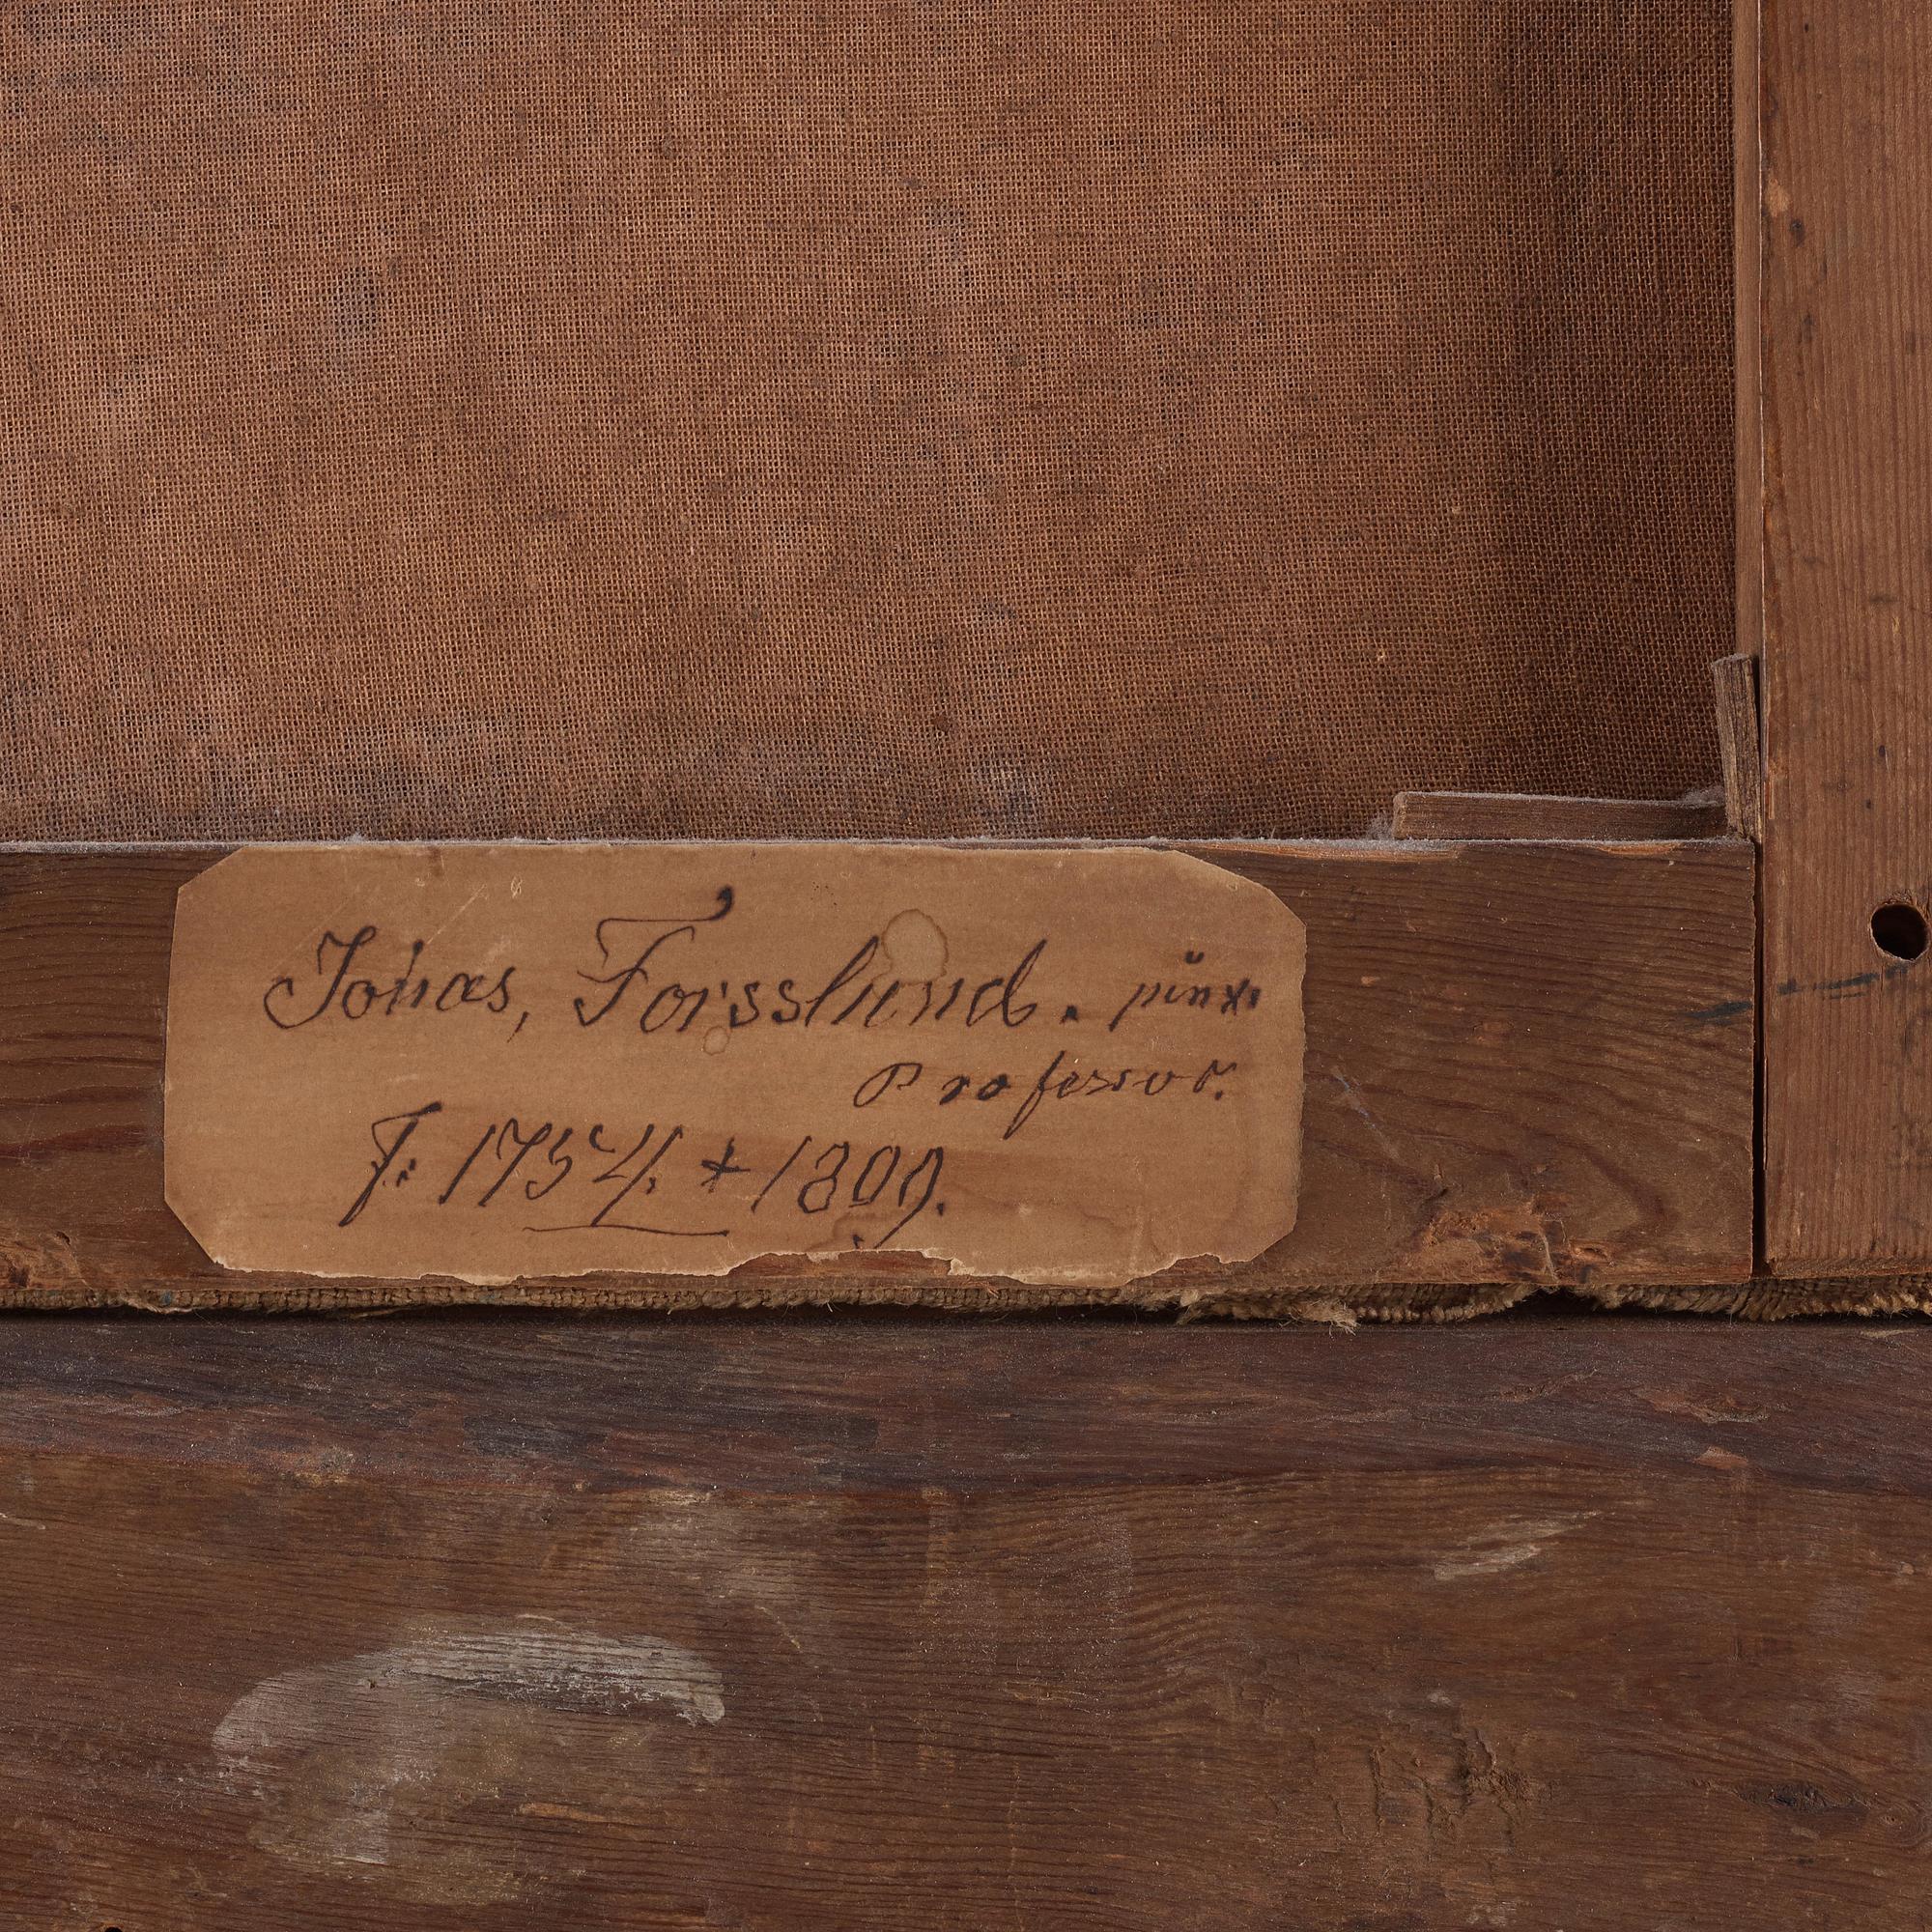 Jonas, Forsslund. pinx.
Professor.
F: 1754. + 1809.